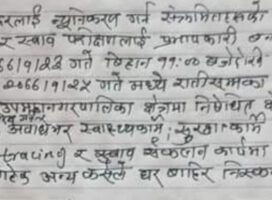 रलाई न्यूनिकरण गर्न संक्रमितहरुको
र स्वाब परीक्षणलाई प्रभावकारी बन
गते बिहान ११:०० बजेदेखि
२०७७/१/२५ गते मध्ये रातीसम्मका
उपमहानगरपालिका क्षेत्रमा निषेधित
अवधिभर स्वास्थ्यकर्मी, सुरक्षाकर्मी
tracing र स्वाब संकलन कार्यमा
अन्य कसैले घर बाहिर निस्क